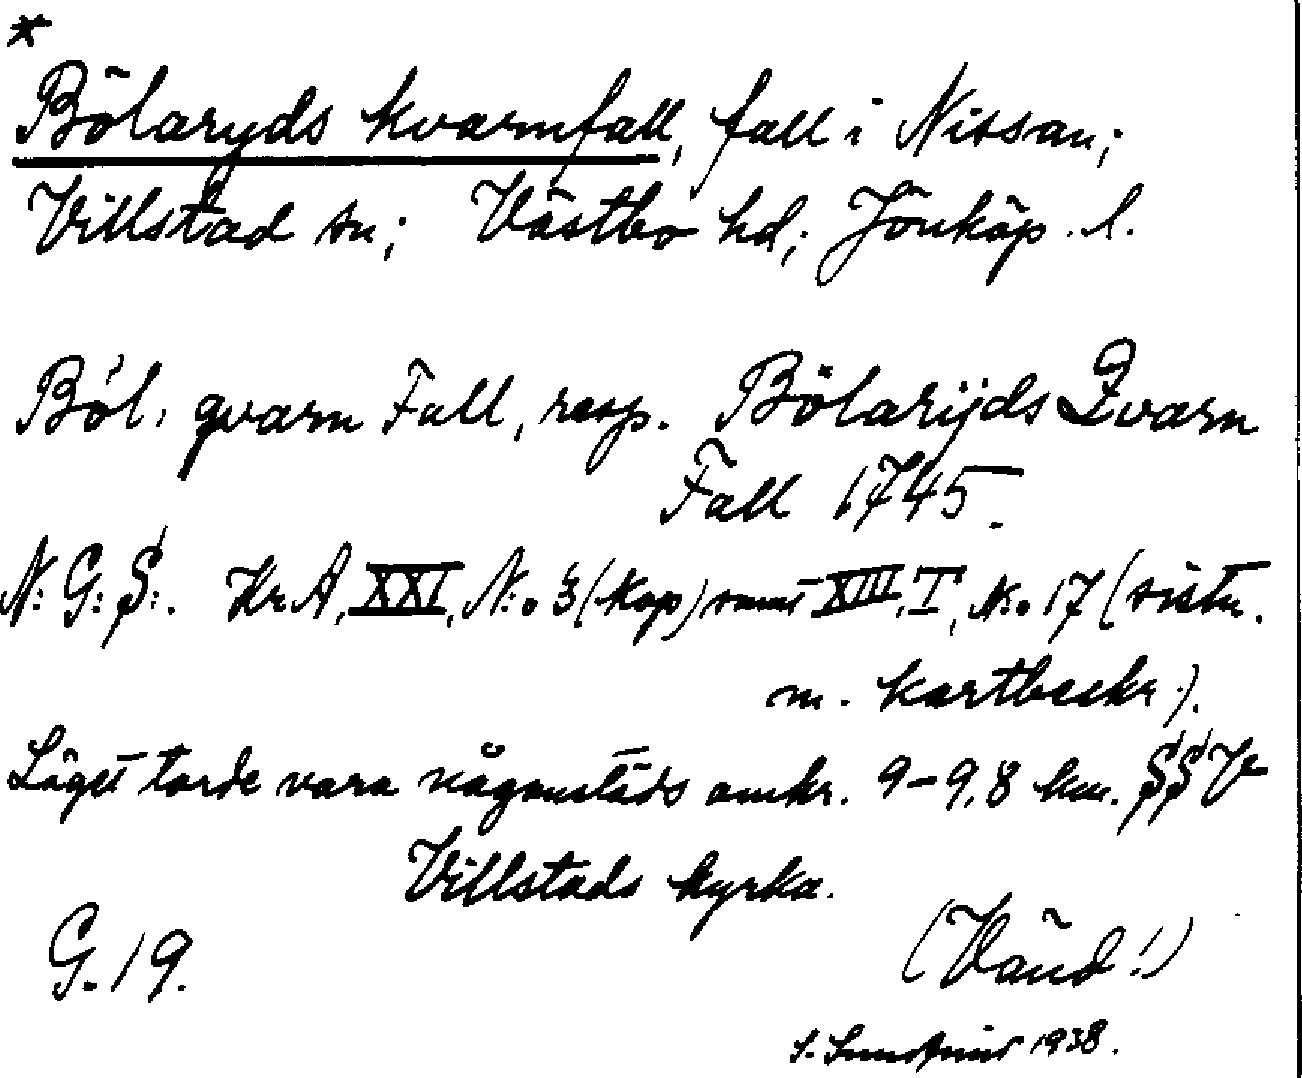 *
Bölaryds kvarnfall, fall i Nissan;
Villstad sn; Västbo hd; Jönköp. l.
Böl. qvarn Fall, resp. Bölarijds Qvarn
Fall 1745.
N: G: S:. Kr A, XXI, N:o 3 (kop) samt XIII, I, N:o 17 (sistn.
m. kartbeskr).
Läget torde vara någonstäds omkr. 9-9,8 km. SSV
Villstads kyrka.
G. 19.
(Vänd!)
1938.